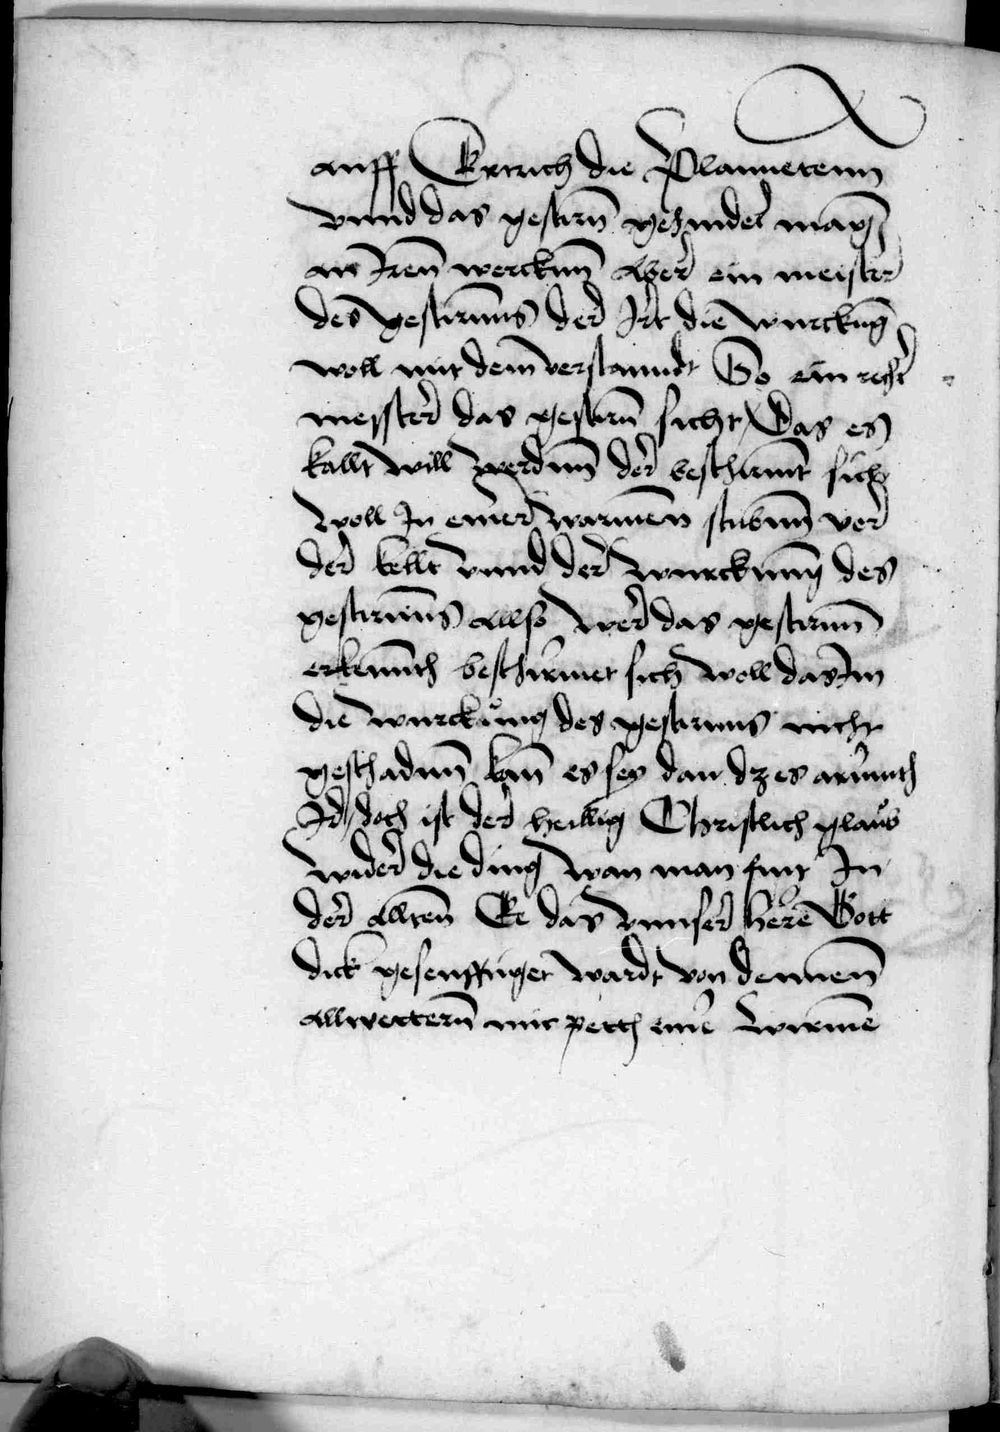 auff Ertrich die Plannetenn
vnnd das gestirn̄ gehindert mag
an Iren̄ werckun̄ Aber ein meister
des gestirnns der Irt die wurckug
woll mit dem verstanndt So ein recht
meyster das gestirn̄ sicht / Das es
kallt will werdnn̄ der beschirmt sich
woll In einer warmen stubnn̄ vor
der kellt vnnd der wurckunng des
gestirnns Allso wer das gestirnn̄
erkennth beschirmet sich woll das Im
die wurckůng des gestirnns nicht
geschadnn̄ kan̄ es sey dan dz es armuth
Ir / doch ist der heillig Christlich glaůb
wider die ding wan man fint In
der Allten̄ Ee das vnnser here Gott
dick gesenfftiget wardt von dennen̄
Allvettern̄ mit pett eine wirme